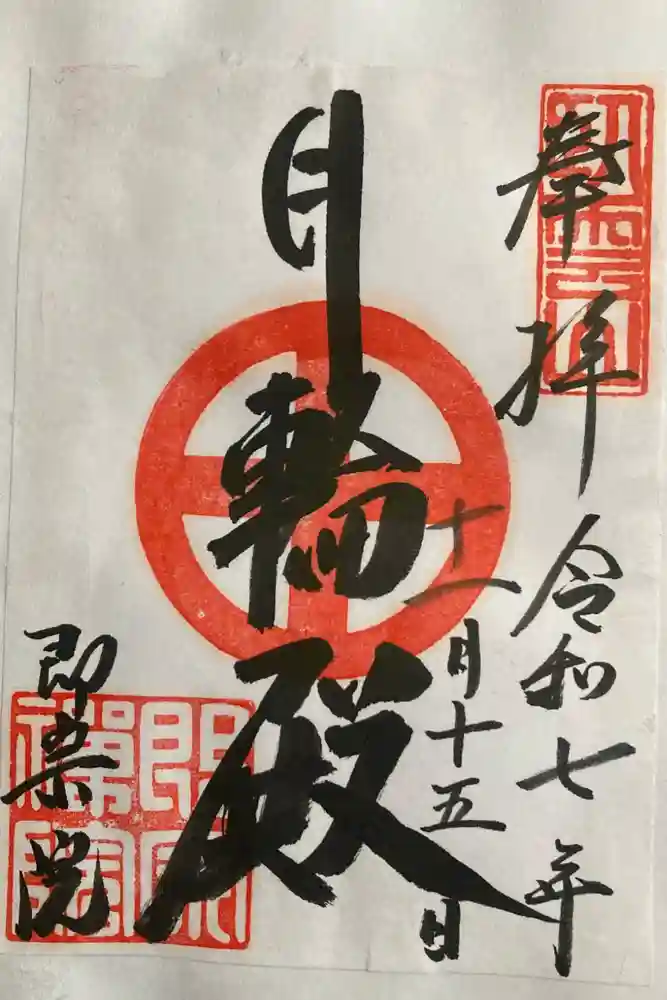 奉拝
令和七年
十一月十五日
月輪殿
即宗院